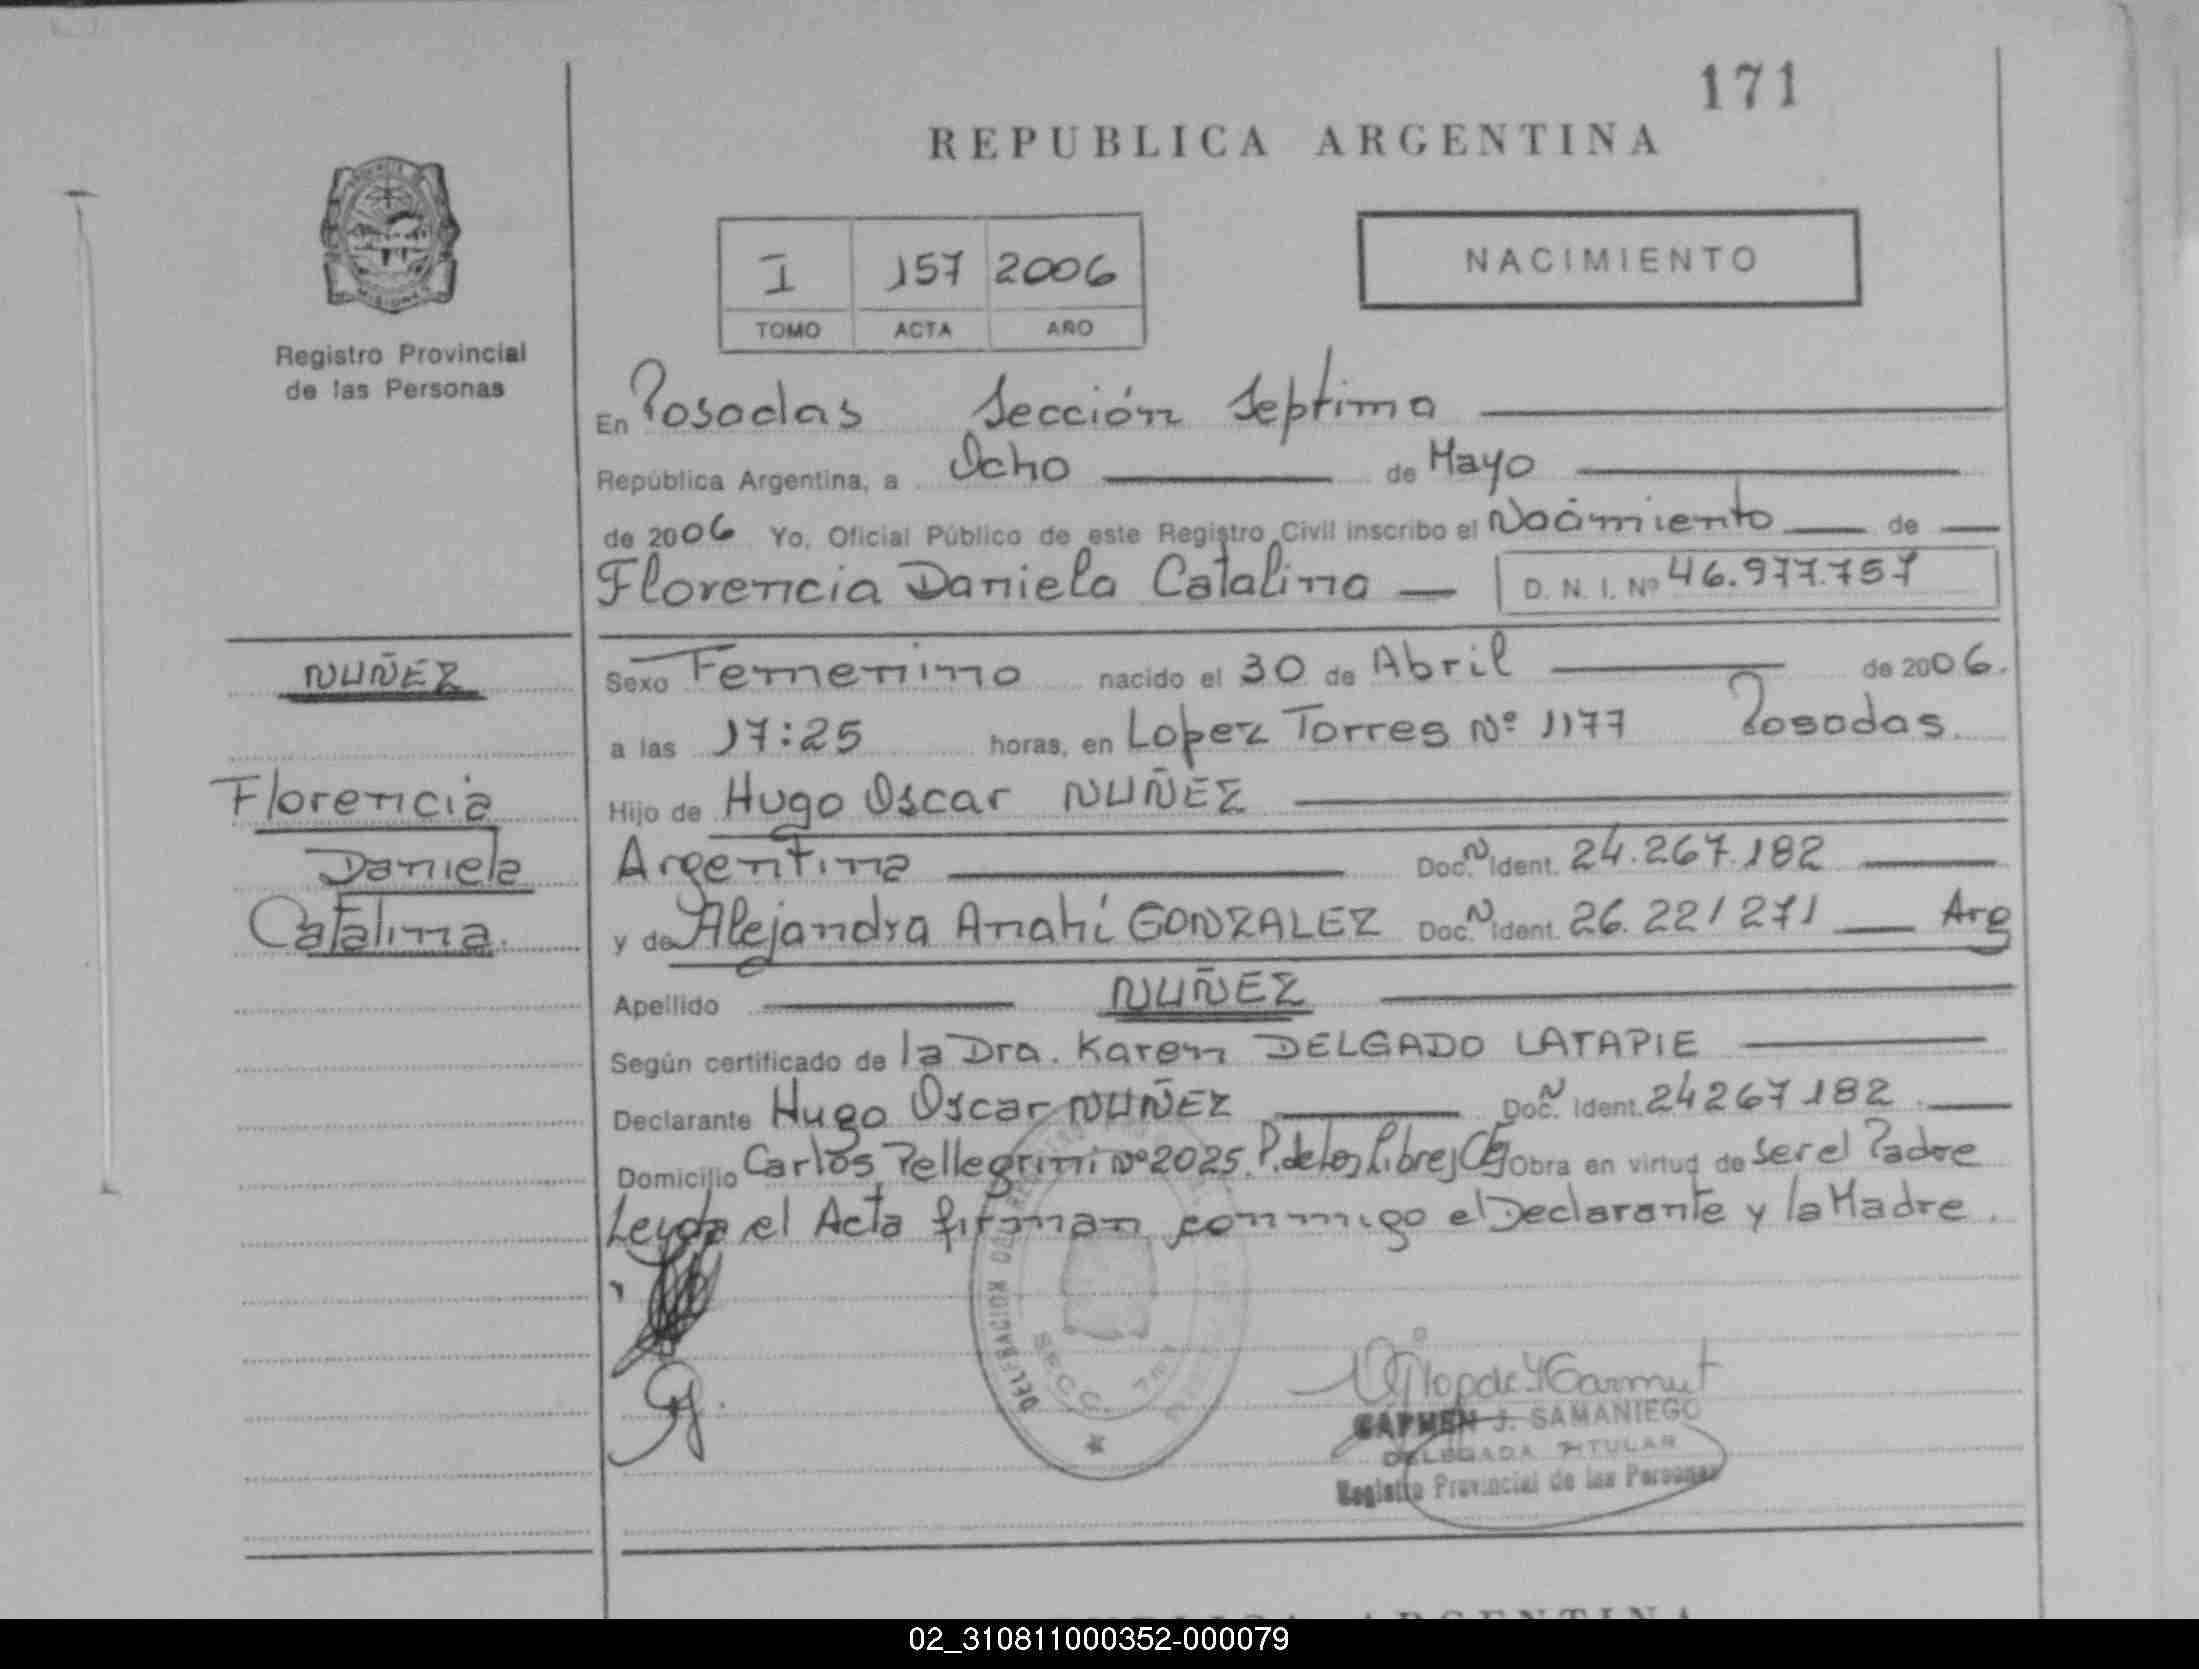 171
REPUBLICA ARGENTINA
NACIMIENTO
I 157 2006
TOMO ACTA AÑO
Registro Provincial
de las Personas
En Posadas Sección Septima
República Argentina, a Ocho de Mayo
de 2006 Yo, Oficial Público de este Registro Civil inscribo el Nacimiento de
Florencia Daniela Catalina D. N. I. Nº 46.977.757
NUÑEZ
Florencia
Daniela
Catalina.
Sexo Femenino nacido el 30 de Abril de 2006.
a las 17:25 horas, en Lopez Torres Nº 1177 Posadas.
Hijo de Hugo Oscar NUÑEZ
Argentina Doc. N Ident. 24.267.182
y de Alejandra Anahí GONZALEZ Doc. N Ident. 26.221271 Arg
Apellido NUÑEZ
Según certificado de la Dra. Karen DELGADO LATAPIE
Declarante Hugo Oscar NUÑEZ Doc. N Ident. 24267182
Domicilio Carlos Pellegrini Nº 2025. P. de los Libres Obra en virtud de ser el Padre
Leyda el Acta firman conmigo el Declarante y la Madre.
CARMEN J. SAMANIEGO
DELEGADA TITULAR
Registro Provincial de las Personas
REPUBLICA ARGENTINA
02_310811000352-000079